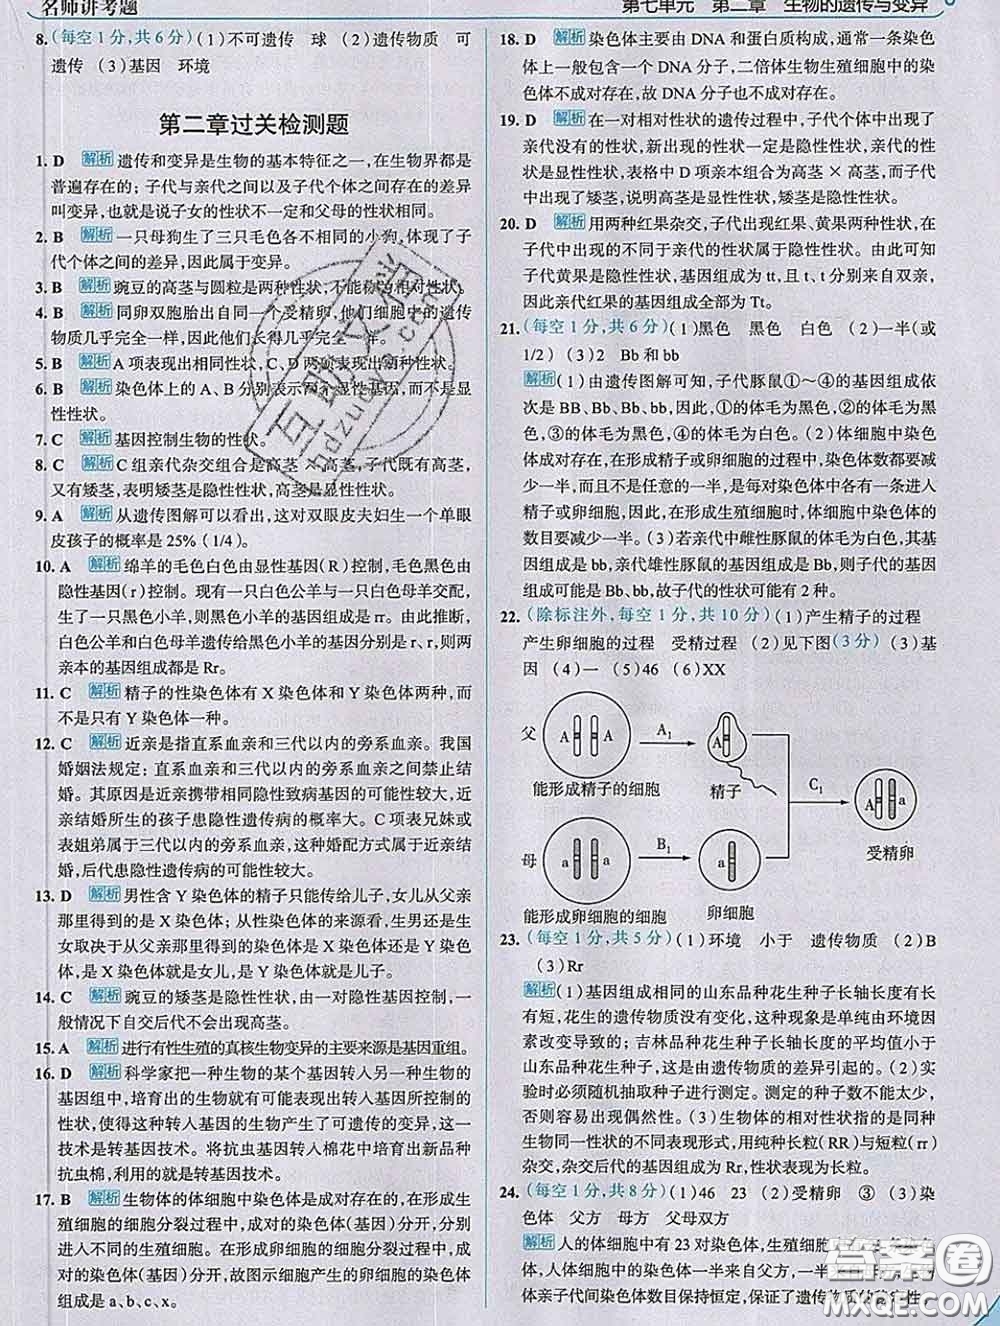 名师讲考题
第七单元 第二章 生物的遗传与变异
8. (每空1分,共6分)(1)不可遗传 球 (2)遗传物质 可
遗传 (3)基因 环境
第二章过关检测题
1. D 解析 遗传和变异是生物的基本特征之一,在生物界都是
普遍存在的;子代与亲代之间以及子代个体之间存在的差异
叫变异,也就是说子女的性状不一定和父母的性状相同。
2. B 解析 一只母狗生了三只毛色各不相同的小狗,体现了子
代个体之间的差异,因此属于变异。
3. B 解析 豌豆的高茎与圆粒是两种性状,不能称为相对性状。
4. B 解析 同卵双胞胎出自同一个受精卵,他们细胞中的遗传
物质几乎完全一样,因此他们长得几乎完全一样。
5. B 解析 A项表现出相同性状,C、D两项表现出两种性状。
6. B 解析 染色体上的A、B分别表示两个显性基因,而不是显
性性状。
7. C 解析 基因控制生物的性状。
8. C 解析 C组亲代杂交组合是高茎×高茎,子代既有高茎,
又有矮茎,表明矮茎是隐性性状,高茎是显性性状。
9. A 解析 从遗传图解可以看出,这对双眼皮夫妇生一个单眼
皮孩子的概率是25%(1/4)。
10. A 解析 绵羊的毛色白色由显性基因(R)控制,毛色黑色由
隐性基因(r)控制。现有一只白色公羊与一只白色母羊交配,
生了一只黑色小羊,则黑色小羊的基因组成是rr。由此推断,
白色公羊和白色母羊遗传给黑色小羊的基因分别是r、r,则两
亲本的基因组成都是Rr。
11. C 解析 精子的性染色体有X染色体和Y染色体两种,而
不是只有Y染色体一种。
12. C 解析 近亲是指直系血亲和三代以内的旁系血亲。我国
婚姻法规定:直系血亲和三代以内的旁系血亲之间禁止结
婚。其原因是近亲携带相同隐性致病基因的可能性较大,近
亲结婚所生的孩子患隐性遗传病的概率大。C项表兄妹或
表姐弟属于三代以内的旁系血亲,这种婚配方式属于近亲结
婚,后代患隐性遗传病的可能性较大。
13. D 解析 男性含Y染色体的精子只能传给儿子,女儿从父亲
那里得到的是X染色体;从性染色体的来源看,生男还是生
女取决于从父亲那里得到的染色体是X染色体还是Y染色
体,是X染色体就是女儿,是Y染色体就是儿子。
14. C 解析 豌豆的矮茎是隐性性状,由一对隐性基因控制,一
般情况下自交后代不会出现高茎。
15. A 解析 进行有性生殖的真核生物变异的主要来源是基因重组。
16. D 解析 科学家把一种生物的某个基因转入另一种生物的
基因组中,培育出的生物就有可能表现出转入基因所控制的
性状,使得这种转入基因的生物产生了可遗传的变异,这一
技术是转基因技术。将抗虫基因转入棉花中培育出新品种
抗虫棉,利用的就是转基因技术。
17. B 解析 生物体的体细胞中染色体是成对存在的,在形成生
殖细胞的细胞分裂过程中,成对的染色体(基因)分开,分别
进入不同的生殖细胞。在形成生殖细胞的细胞分裂过程中,
成对的染色体(基因)分开,故图示细胞产生的卵细胞的基因
组成是a、b、c、x。
18. D 解析 染色体主要由DNA和蛋白质构成,通常一条染色
体上一般包含一个DNA分子,二倍体生物生殖细胞中的染
色体不成对存在,故DNA分子也不成对存在。
19. D 解析 在一对相对性状的遗传过程中,子代个体中出现了
亲代没有的性状,新出现的性状一定是隐性性状,亲代的性
状是显性性状,表格中D项亲本组合为高茎×高茎,而子代
中出现了矮茎,说明高茎是显性性状,矮茎是隐性性状。
20. D 解析 用两种红果杂交,子代出现红果、黄果两种性状,在
子代中出现的不同于亲代的性状属于隐性性状。由此可知
子代黄果是隐性性状,基因组成为tt,且t、t分别来自双亲,
因此亲代红果的基因组成全部为Tt。
21. (每空1分,共6分)(1)黑色 黑色 白色 (2)一半(或
1/2) (3)2 Bb和bb
解析 (1)由遗传图解可知,子代豚鼠①～④的基因组成依
次是BB、Bb、Bb、bb,因此,①的体毛为黑色,②的体毛为黑
色,③的体毛为黑色,④的体毛为白色。(2)体细胞中染色
体成对存在,在形成精子或卵细胞的过程中,染色体数都要减
少一半,而且不是任意的一半,是每对染色体中各有一条进入
精子或卵细胞。因此,在形成生殖细胞时,体细胞中染色体的
数目要减少一半。(3)若亲代中雌性豚鼠的体毛为白色,其基
因组成是bb,亲代雄性豚鼠的基因组成是Bb,则子代的基因
组成可能是Bb、bb,故子代的性状可能有2种。
22. (除标注外,每空1分,共10分)(1)产生精子的过程
产生卵细胞的过程 受精过程 (2)见下图(3分) (3)基
因 (4)一 (5)46 (6)XX
父 A A A₁ A
能形成精子的细胞 精子
C₁ A a
受精卵
母 a a B₁ a
能形成卵细胞的细胞 卵细胞
23. (每空1分,共5分)(1)环境 小于 遗传物质 (2)B
(3)Rr
解析 (1)基因组成相同的山东品种花生种子长轴长度有长
有短,花生的遗传物质没有变化,这种现象是单纯由环境因
素改变导致的;吉林品种花生种子长轴长度的平均值小于
山东品种花生种子,这是由遗传物质的差异引起的。(2)实
验时必须随机抽取种子进行测定。测定的种子数不能太少,
否则容易出现偶然性。(3)生物体的相对性状指的是同种
生物同一性状的不同表现形式,用纯种长粒(RR)与短粒(rr)
杂交,杂交后代的基因组成是Rr,性状表现为长粒。
24. (每空1分,共8分)(1)46 23 (2)受精卵 ③ (3)染
色体 父方 母方 父母双方
解析 人的体细胞中有23对染色体,生殖细胞
人体细胞中的染色体一半来自父方,一半
体亲子代间染色体数目保持恒定,保证了遗传物质的稳定性。
答案卷
MXQE.COM